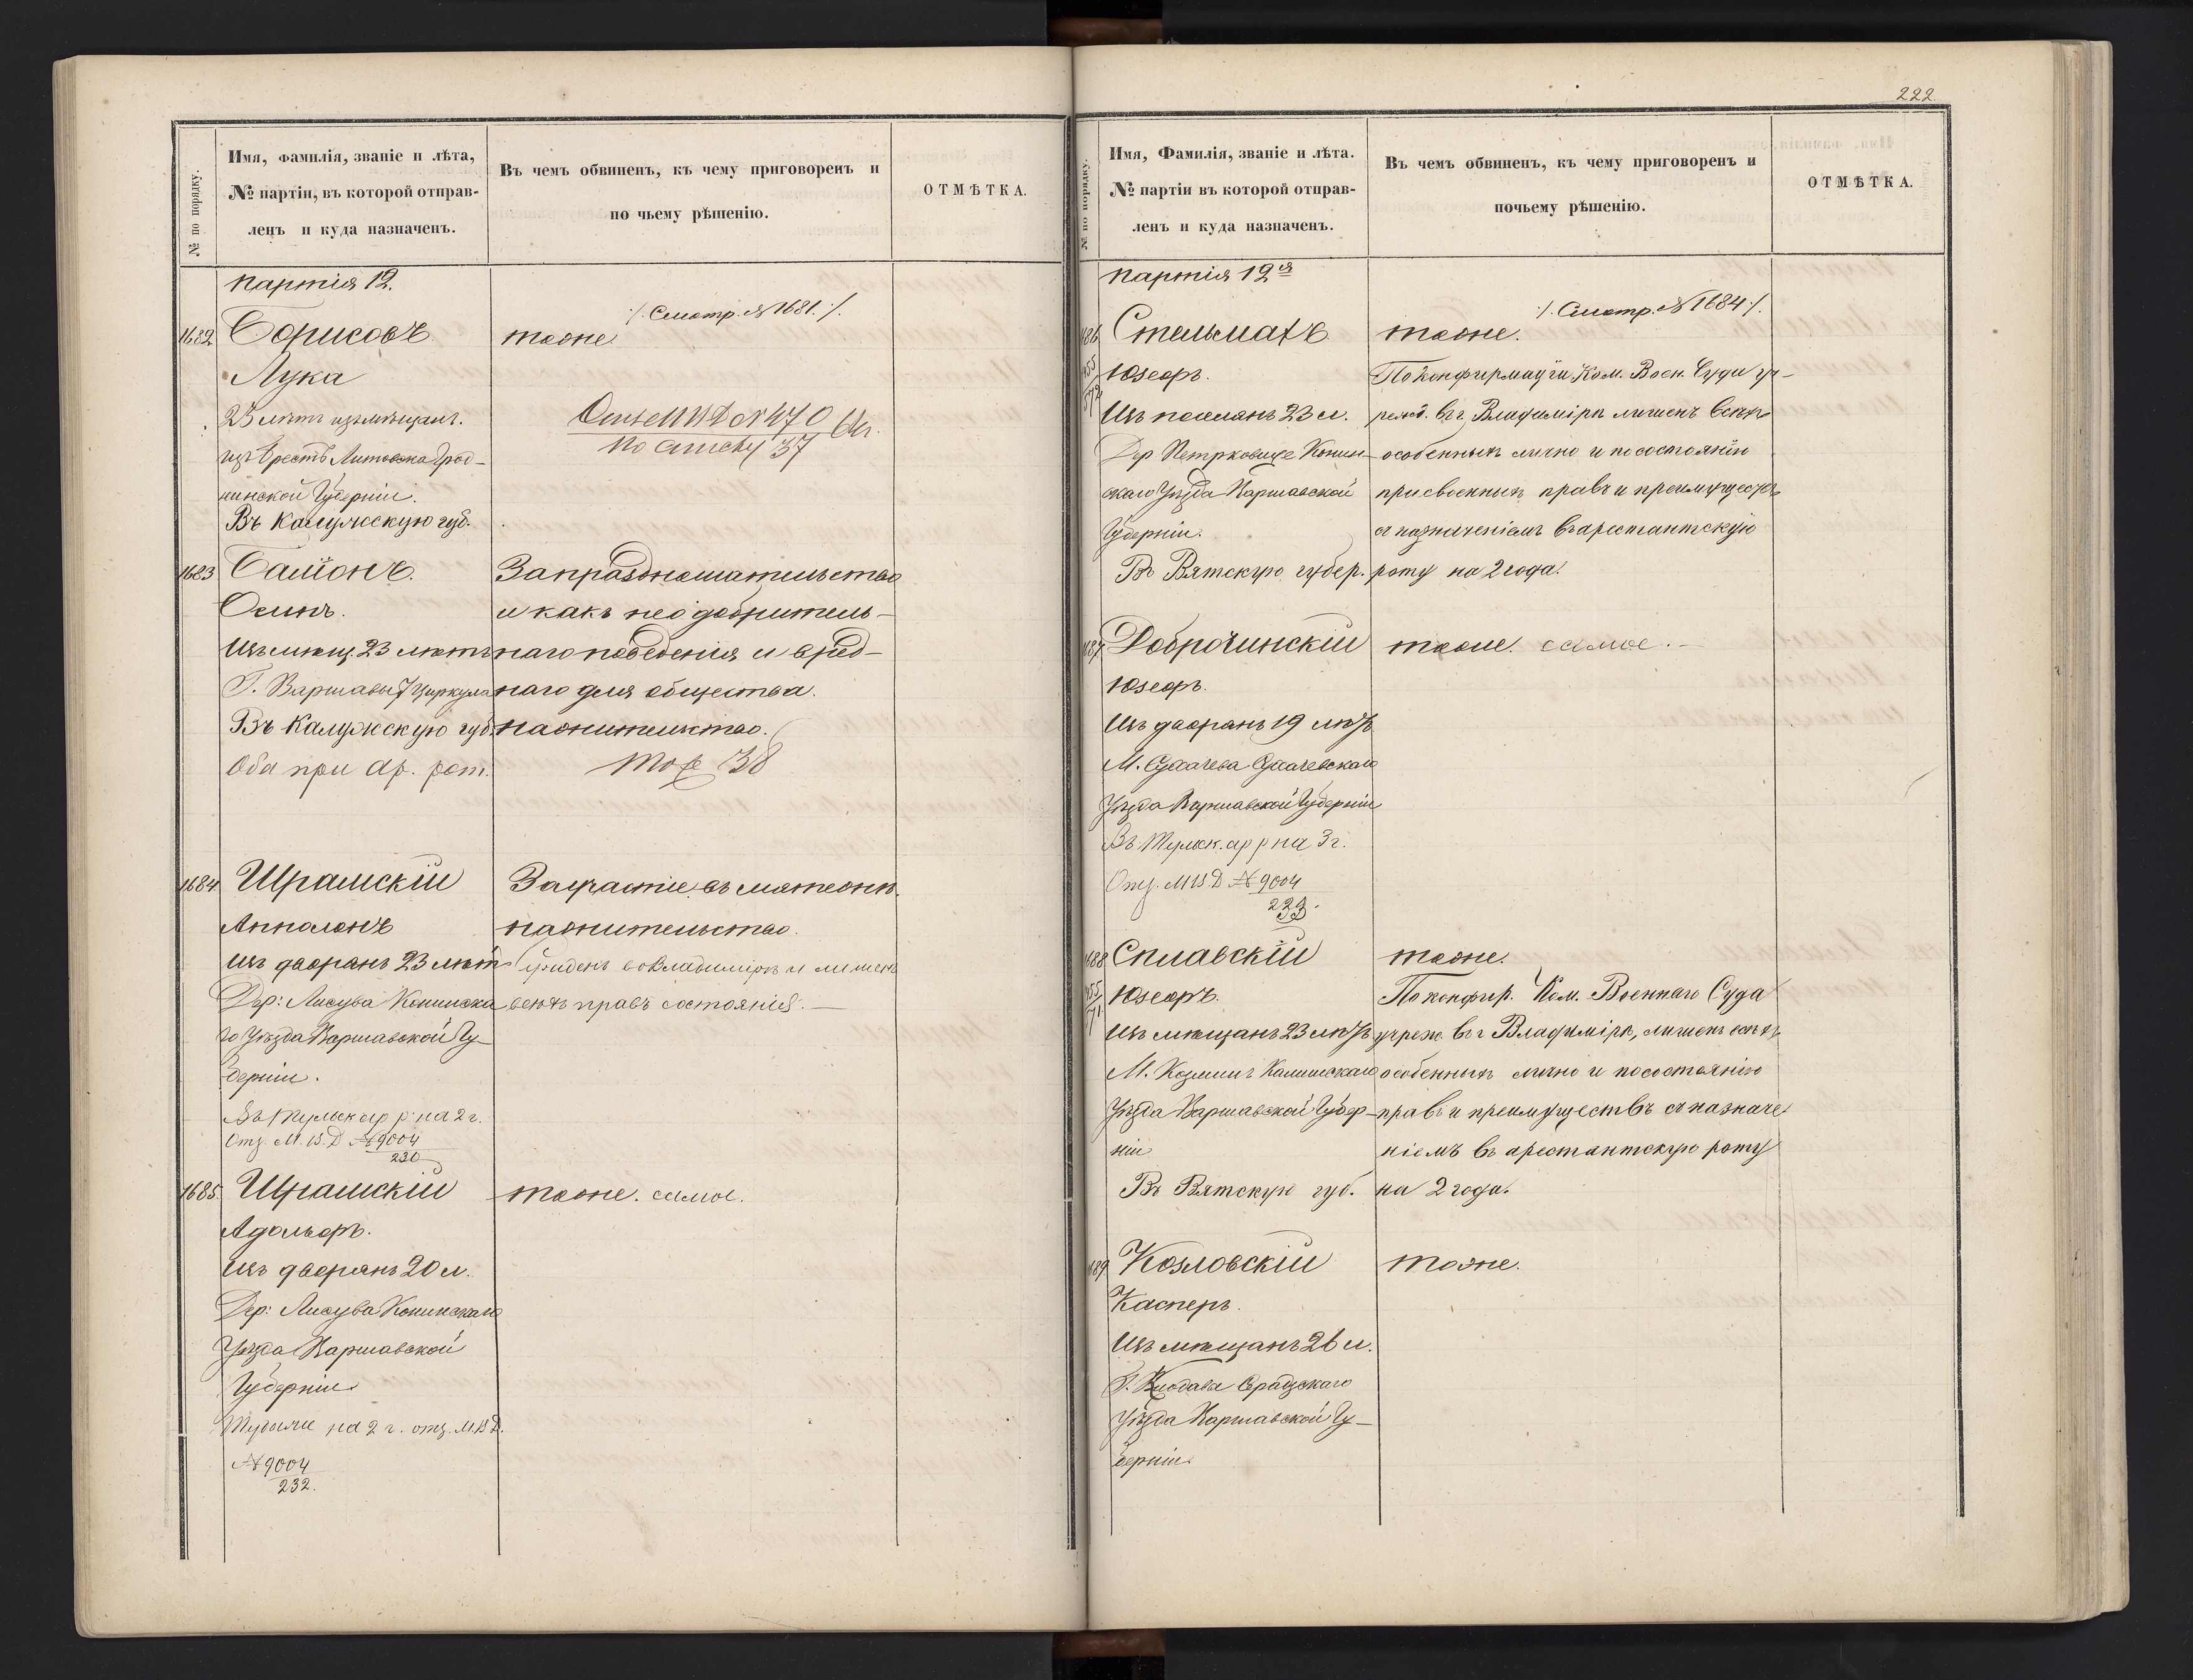 222.
№ по порядку.
Имя, фамилія, званіе и лѣта,
№ партіи, въ которой отправ-
ленъ и куда назначенъ.
Въ чемъ обвиненъ, къ чему приговоренъ и
по чьему рѣшенію.
ОТМѢТКА.
партія 12.
:/. Смотр. № 1681. :/.
1682 Борисовъ
тоже
Лука
23 лѣтъ изъ мѣщанъ.
изъ Брестъ Литовска Грод-
ненской Губерніи.
Въ Калужскую губ.
№ 470
по списку 37
1683 Саміонъ.
Осипъ.
Изъ мѣщ. 23 лѣтъ
Г. Варшавы 7 Циркула
Въ Калужскую губ.
Оба при ар. рот.
За праздношательство
и какъ неодобритель-
наго поведенія и вред-
наго для общества.
на жительство.
Тоже 38
1684 Шрамскій
Апполонъ
Изъ дворянъ 23 лѣт
Дер: Лисува Конинска
го Уѣзда Варшавской Гу-
берніи.
Въ Тульск ар р на 2 г.
Отз. М. В. Д № 9004
230
За участіе въ мятежѣ.
на жительство.
сужденъ во Владимірѣ и лишенъ
всѣхъ правъ состоянія. —
1685 Шрамскій
тоже. самое.
Адольфъ.
Изъ дворянъ 20 л.
Дер: Лисува Конинскаго
Уѣзда Варшавской
Губерніи
на 2 г. отз. М. В Д.
№ 9004
232.
№ по порядку.
Имя, Фамилія, званіе и лѣта.
№ партіи въ которой отправ-
ленъ и куда назначенъ.
Въ чемъ обвиненъ, къ чему приговоренъ и
почьему рѣшенію.
ОТМѢТКА.
партія 12я
:/. Смотр. № 1684 :/.
1686 Стельмахъ
тоже.
Юзефъ.
Изъ поселянъ 23 л.
Дер Петрковице Конин-
скаго Уѣзда Варшавской
Губерніи.
Въ Вятскую губер.
По конфирмаціи Ком. Воен. Суда уч-
режд. въ г. Владимірѣ лишенъ всѣхъ
особенныхъ лично и по состоянію
присвоенныхъ правъ и преимуществъ
съ назначеніемъ въ арестантскую
роту на 2 года.
1687 Доброчинскій
тоже. самое. —
Юзефъ.
Изъ дворянъ 19 лѣтъ
М. Сухачева Сухачевскаго
Уѣзда Варшавской Губерніи
Въ Тульск. ар р на 3 г.
Отз. М В. Д № 9004
1688 Сплавскій
тоже.
Юзефъ.
Изъ мѣщанъ 23 лѣтъ
М. Козминъ Калишскаго
Уѣзда Варшавской Губер-
ніи
Въ Вятскую губ.
По конфир. Ком. Военнаго Суда
учреж въ г Владимірѣ, лишенъ всѣхъ
особенныхъ лично и по состоянію
правъ и преимуществъ съ назначе
ніемъ въ арестантскую роту
на 2 года.
1689 Козловскій
тоже.
Касперъ.
Изъ мѣщанъ 26 л.
Г. Клодава
Уѣзда Варшавской Гу-
берніи